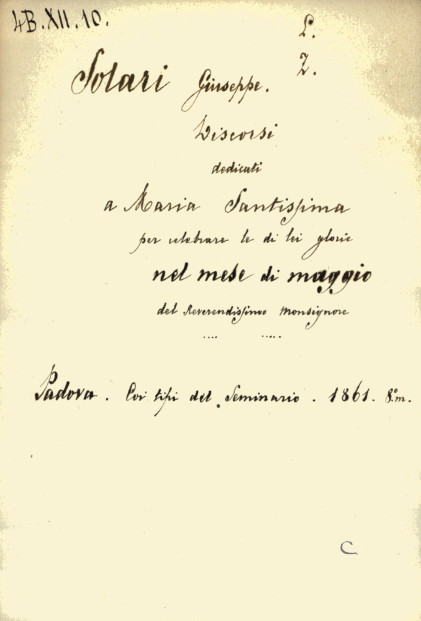 4B.XII.10.
L.
Z.
Solari Giuseppe.
Discorsi
dedicati
a Maria Santissima
per celebrare le di lei glorie
nel mese di maggio
del Reverendissimo Monsignore
.... .....
Padova. Coi tipi del Seminario. 1861. 8.º m.
C